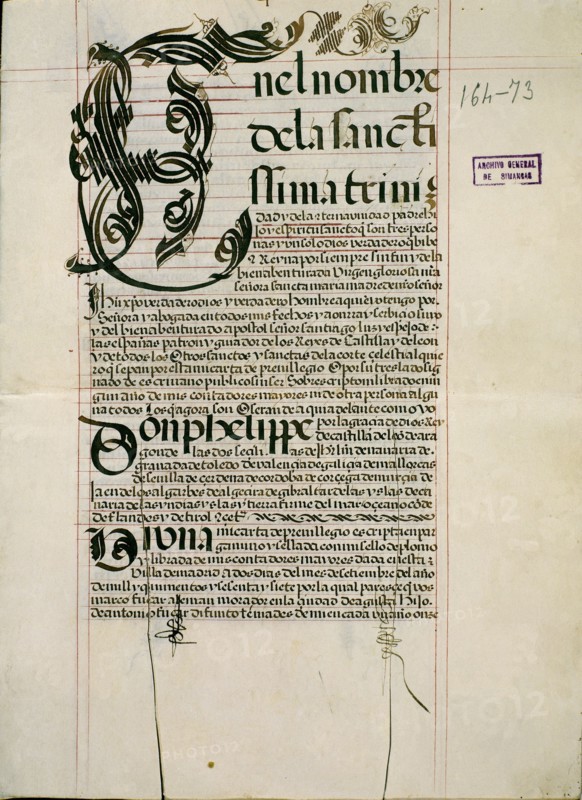 En el nombre
de la sancti
ssima trini
dad y de la eterna unidad padre hi
jo y espiritu sancto q son tres perso
nas y un solo dios verdadero q bibe
e Reyna por siempre sin fin y de la
bienabenturada Virgen gloriosa nra
señora sancta maria madre de nro señor
Jhu xpo verdadero dios y verdadero hombre a quien yo tengo por
Señora y abogada en todos mis fechos y a onrra y serbicio suyo
y del bienabenturado apostol señor santiago luz y espejo de
las españas patron y guiador de los Reyes de Castilla y de leon
y de todos los Otros sanctos y sanctas de la corte celestial quie
ro q sepan por esta mi carta de previllegio O por su treslado sig
nado de escrivano publico sin ser Sobrescripto ni librado en nin
gun año de mis contadores mayores ni de otra persona algu
na todos Los q agora son O seran de aqui adelante como yo
Don phelippe por la gracia de dios Rey
de castilla de leon de ara
gon de las dos secilias de Jhrlm de navarra de
granada de toledo de valencia de galicia de mallorcas
de sevilla de cerdena de cordoba de corcega de murcia de
Jaen de los algarbes de algecira de gibraltar de las yslas de ca
naria de las yndias yslas y tierra firme del mar oceano conde
de flandes y de tirol ect
Vi una mi carta de previllegio escripta en par
gamino y sellada con mi sello de plomo
y librada de mis contadores mayores dada en esta
Villa de madrid a dos dias del mes de setiembre del año
de mill y quinientos y sesenta y siete por la qual paresce q vos
marco fucar aleman morador en la ciudad de agusta hijo
de antonio fucar difunto teniades de mi en cada un año onze
164-73
ARCHIVO GENERAL
DE SIMANCAS
PHOTO12